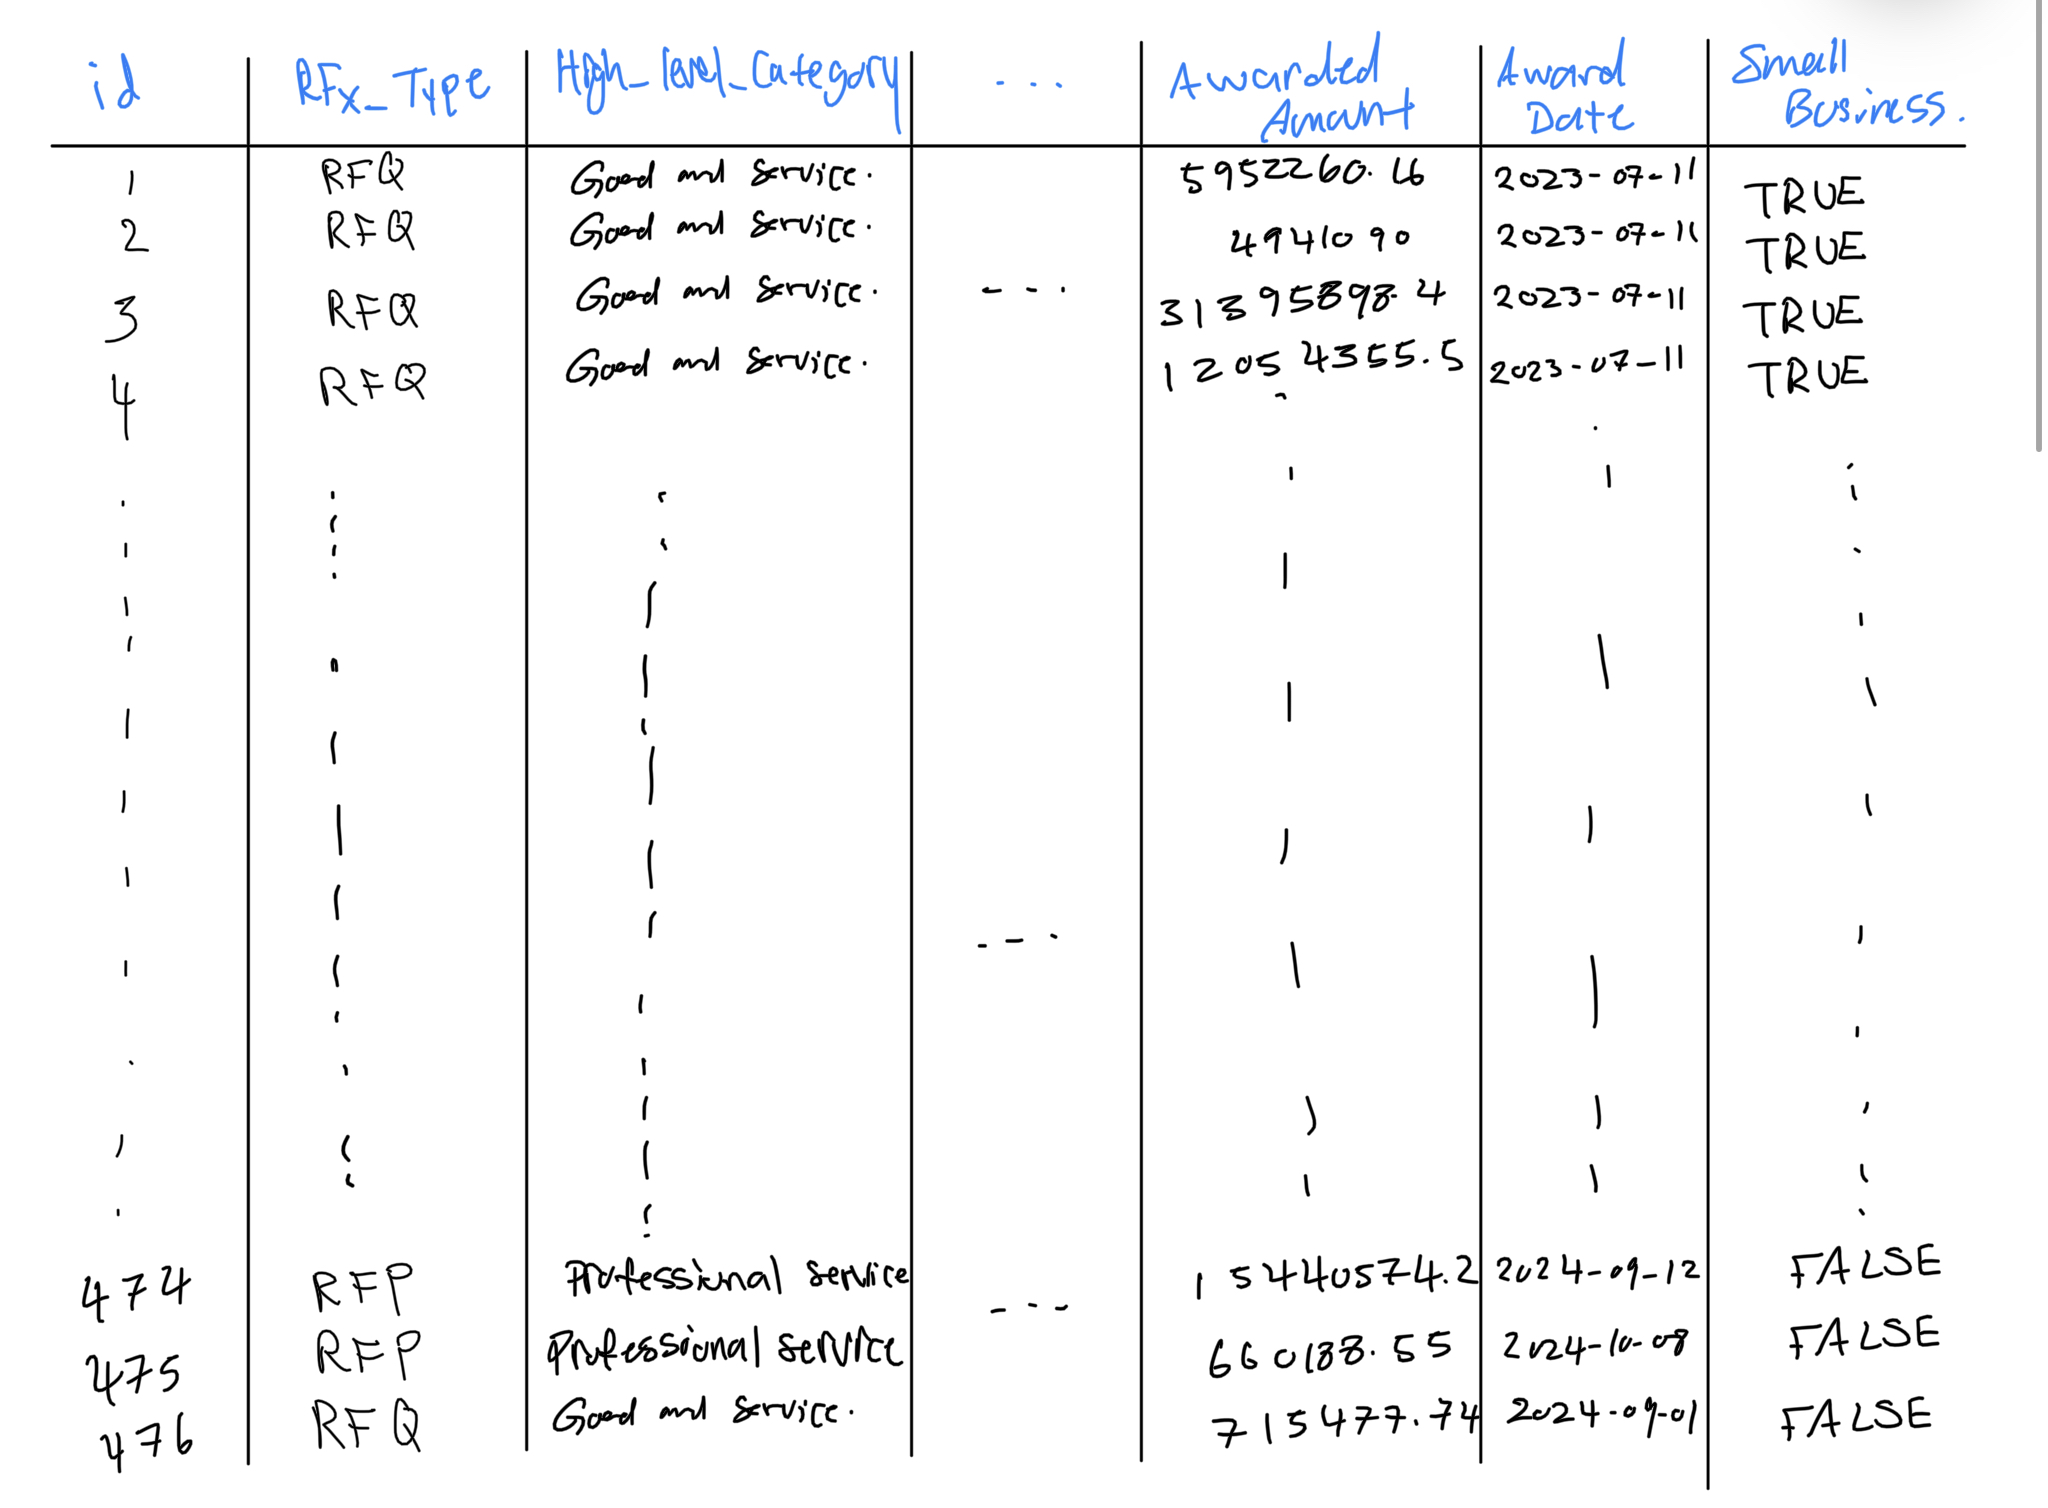 id RFx_Type High_level_Category ... Awarded Amount Award Date Small Business.
1 RFQ Good and Service. 5952260.16 2023-07-11 TRUE
2 RFQ Good and Service. 4941090 2023-07-11 TRUE
3 RFQ Good and Service. --. 31395898.4 2023-07-11 TRUE
4 RFQ Good and Service. 12054355.5 2023-07-11 TRUE
474 RFP Professional Service --- 15440574.2 2024-09-12 FALSE
475 RFP Professional Service 660188.55 2024-10-08 FALSE
476 RFQ Good and Service. 715477.74 2024-09-01 FALSE